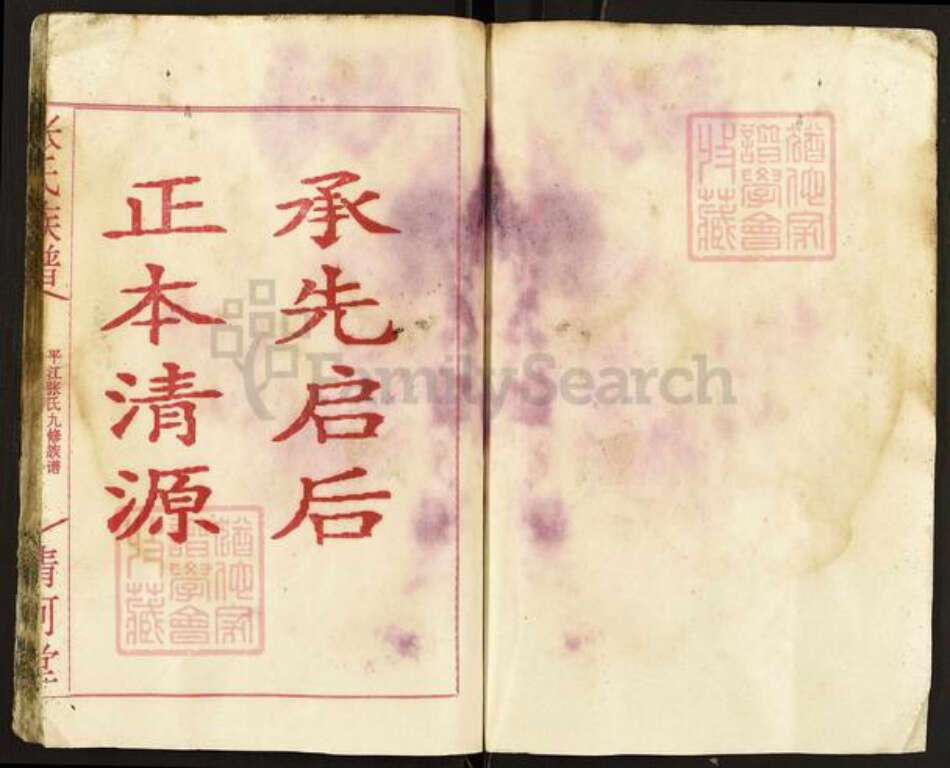 承先启后
正本清源
张氏族谱
平江张氏九修族谱
清河堂
猶他家
譜學會
收藏
猶他家
譜學會
收藏
FamilySearch